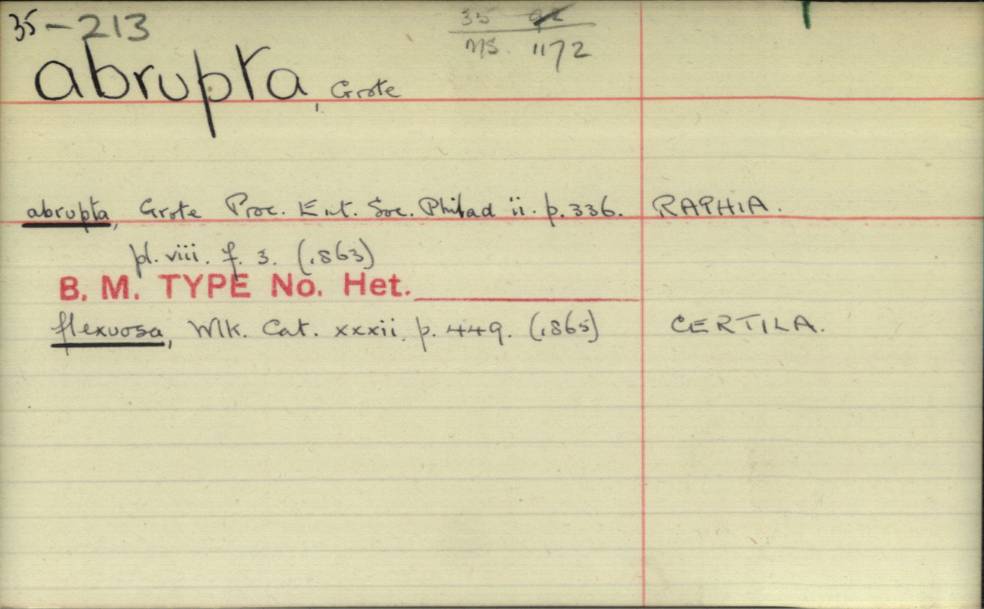 35-213
35 92
MS. 1172
abrupta, Grote
abrupta, Grote Proc. Ent. Soc. Philad ii. p. 336. RAPHIA.
pl. viii. f. 3. (1863)
B. M. TYPE No. Het.
flexuosa, Wlk. Cat. xxxii. p. 449. (1865) CERTILA.